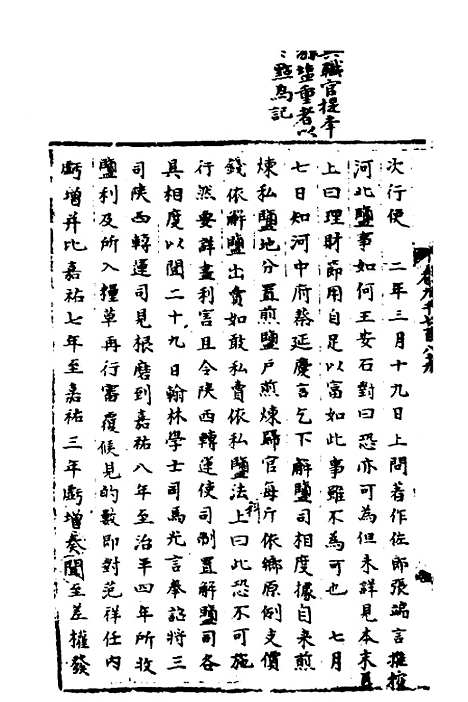 職官提舉
鹽重者以
點為記
次行使　二年三月十九日上問著作佐郎張端言榷
河北鹽事如何王安石對曰恐亦可為但未詳見本末
上曰理財節用自足以富如此事雖不為可也　七月
七日知河中府蔡延慶言乞下解鹽司相度據自來煎
煉私鹽地分置煎鹽戶煎煉歸官每斤依鄉原例支價
錢依解鹽出賣如敢私賣依私鹽法科上曰此恐不可施
行然要詳盡利害且令陝西轉運使司制置解鹽司各
具相度以聞二十九日翰林學士司馬光言奉詔將三
司陝西轉運司見根磨到嘉祐八年至治平四年所收
鹽利及所入糧草再行審覆候見的數即對范祥任內
虧增并比嘉祐七年至嘉祐三年虧增奏聞至差權發